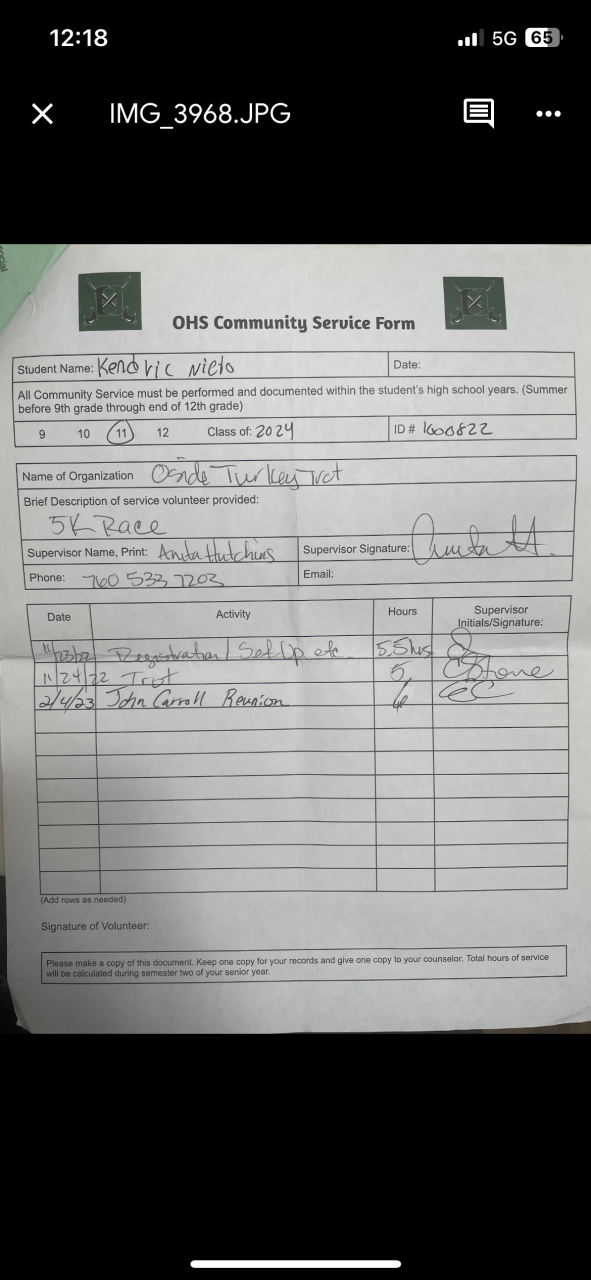 12:18
5G 65
IMG_3968.JPG
OHS Community Service Form
Student Name: Kendric Nieto
Date:
All Community Service must be performed and documented within the student's high school years. (Summer
before 9th grade through end of 12th grade)
9 10 11 12 Class of: 2024 ID # 1600822
Name of Organization Oside Turkey Trot
Brief Description of service volunteer provided:
5K Race
Supervisor Name, Print: Anita Hutchins Supervisor Signature: Anita H.
Phone: 760 533 7203 Email:
Date Activity Hours Supervisor
Initials/Signature:
11/23/22 Registration/ Set Up etc. 5.5hrs
11/24/22 Trot 5 Stone
2/4/23 John Carroll Reunion 6 EC
(Add rows as needed)
Signature of Volunteer:
Please make a copy of this document. Keep one copy for your records and give one copy to your counselor. Total hours of service
will be calculated during semester two of your senior year.